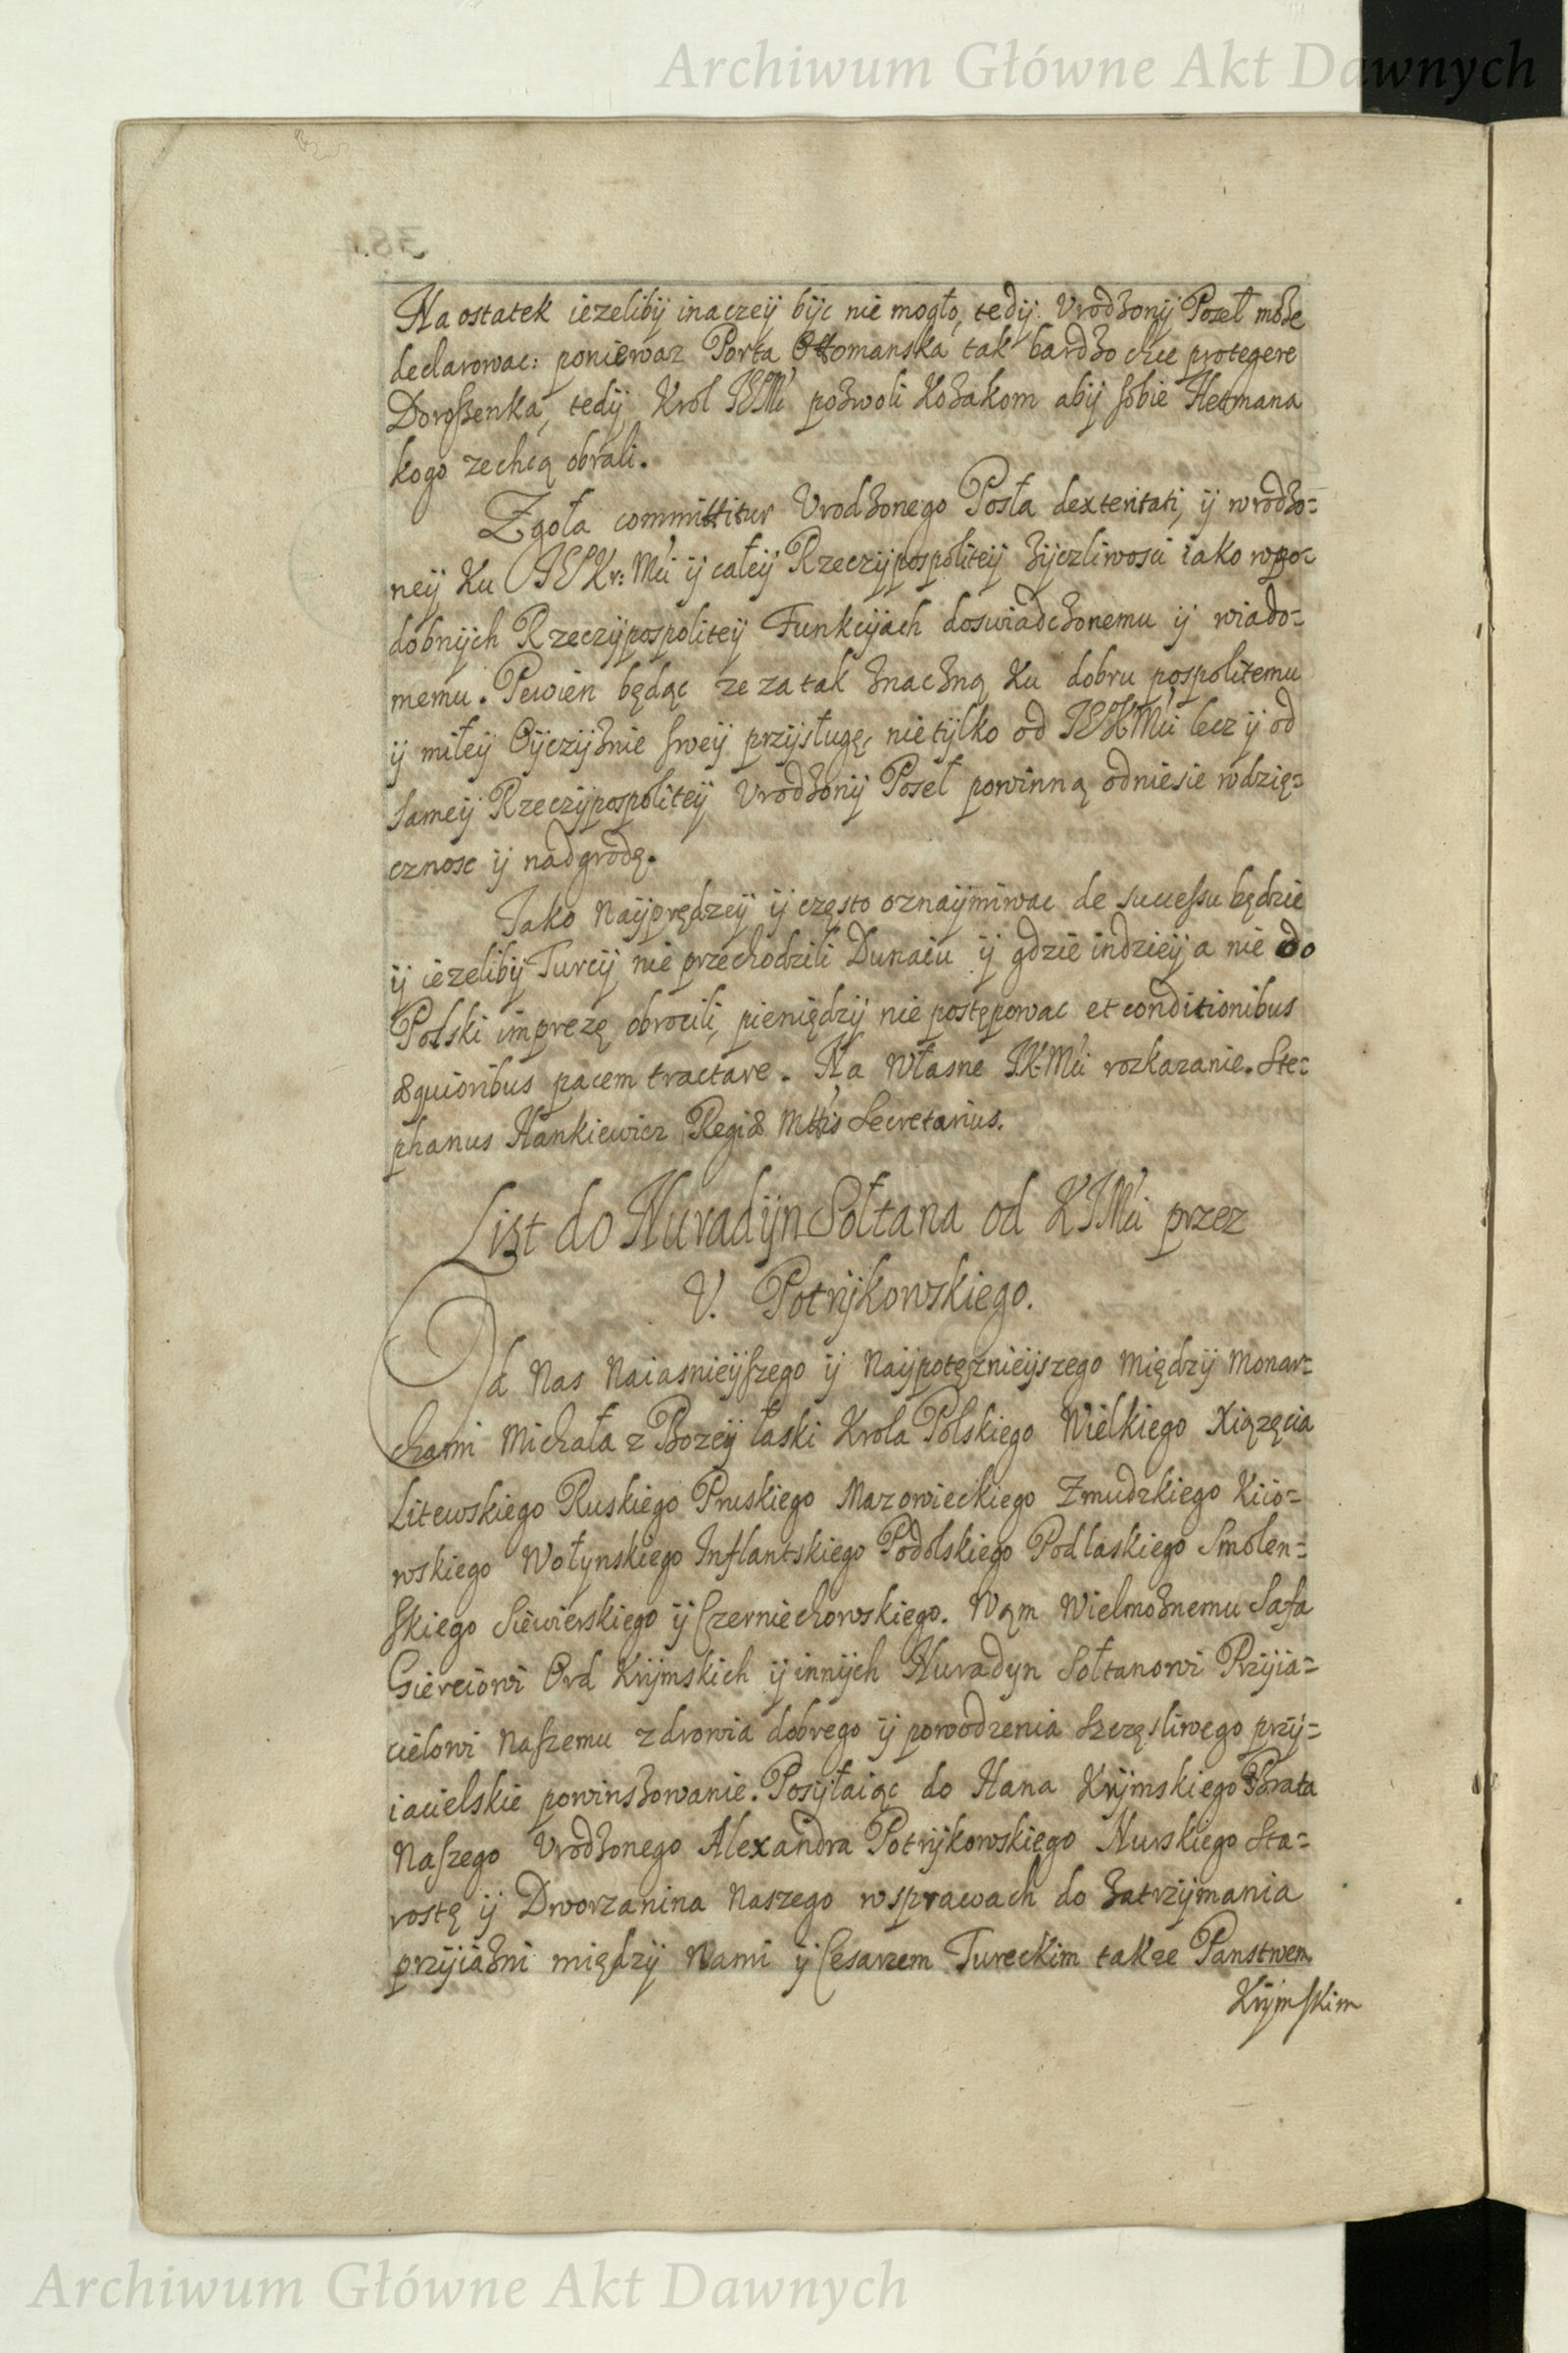 Archiwum Główne Akt Dawnych
Na ostatek iezelibÿ inaczeÿ bÿc nie mogło, tedÿ Vrodzonÿ Poseł może
declarowac: poniewaz Porta Ottomanska tak bardzo chce protegere
Doroszenka, tedÿ Krol JEMć pozwoli Kozakom abÿ sobie Hetmana
kogo zechcą obrali.
Zgoła committitur Vrodzonego Posła dexteritati, ÿ wrodzo=
neÿ Ku JEKr: Mći ÿ całeÿ Rzeczÿpospoliteÿ zÿczliwosci iako w po=
dobnÿch Rzeczÿpospoliteÿ Funkcÿach doswiadczonemu ÿ wiado=
memu. Pewien będąc ze za tak znaczną Ku dobru pospolitemu
ÿ miłeÿ Oÿczÿznie sweÿ przÿsługę, nie tÿlko od JEKMći lecz ÿ od
sameÿ Rzeczÿpospoliteÿ Vrodzonÿ Poseł powinną odniesie wdzię=
cznosc ÿ nadgrodę.
Jako Naÿprędzeÿ ÿ często oznaÿmiwac de successu będzie
ÿ iezelibÿ Turcÿ nie przechodzili Dunaiu ÿ gdzie indzieÿ a nie do
Polski imprezę obrocili, pieniędzÿ nie postępowac et conditionibus
æquioribus pacem tractare. Na własne JKMći rozkazanie. Ste=
phanus Hankiewicz Regiæ Mttis Secretarius.
List do Nuradÿn Sołtana od KJMći przez
V. Potrÿkowskiego.
Od Nas Naiasnieÿszego ÿ Naÿpotęznieÿszego międzÿ Monar=
chami Michała z Bozeÿ łaski Krola Polskiego Wielkiego Xiązęcia
Litewskiego Ruskiego Pruskiego Mazowieckiego Zmudzkiego Kiio=
wskiego Wołynskiego Inflantskiego Podolskiego Podlaskiego Smolen=
skiego Siewierskiego ÿ Czerniechowskiego. Wąm Wielmoznemu Safa
Gierciowi Ord Krÿmskich ÿ innÿch Nuradyn Sołtanowi Przÿia=
cielowi Naszemu zdrowia dobrego ÿ powodzenia szczęsliwego przÿ=
iacielskie powinszowanie. Posÿłaiąc do Hana Krÿmskiego Brata
Naszego Vrodzonego Alexandra Potrÿkowskiego Nurskiego Sta=
rostę ÿ Dworzanina Naszego w sprawach do zatrzÿmania
przÿiazni międzÿ Nami ÿ Cesarzem Tureckim takze Panstwem
Krÿmskim
Archiwum Główne Akt Dawnych